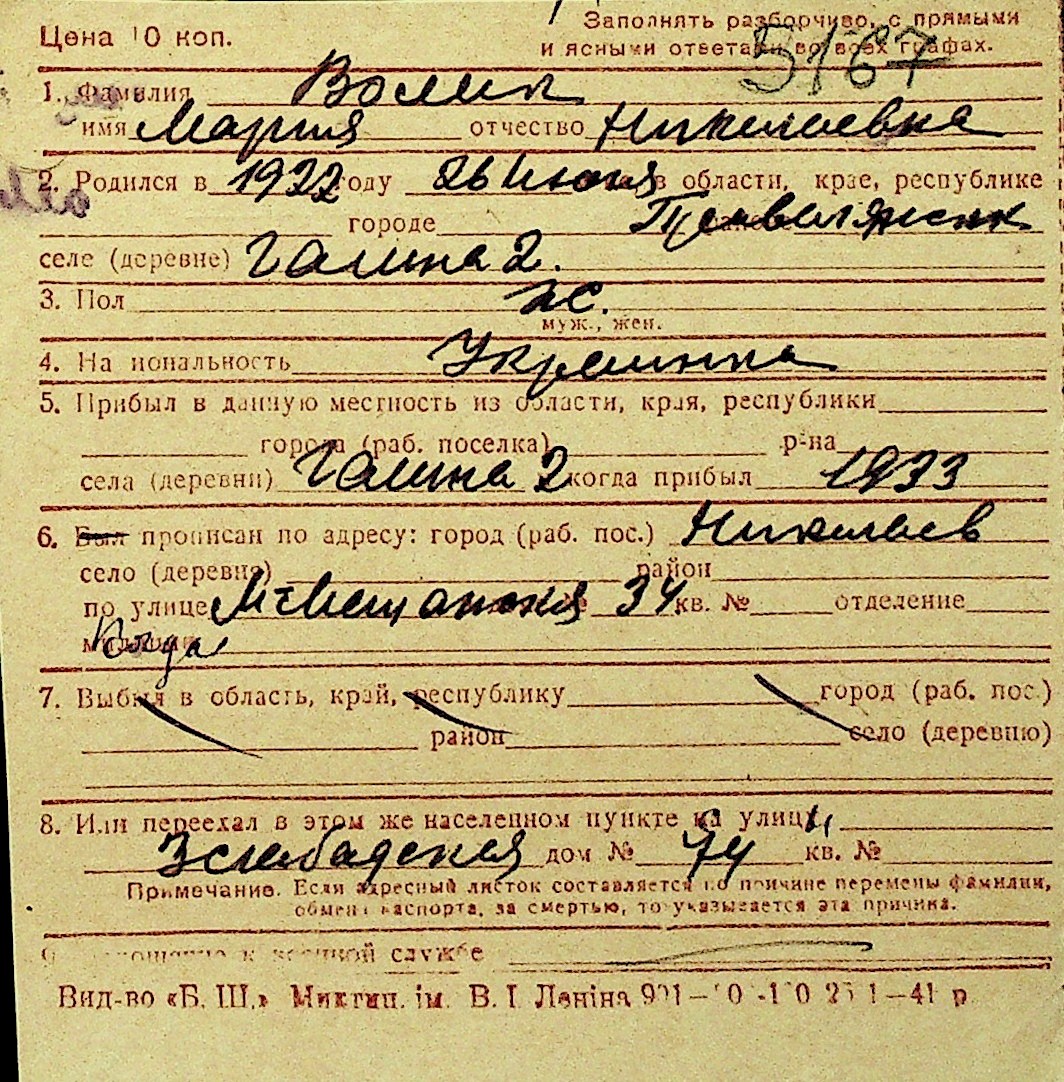 Цена 10 коп.
Заполнять разборчиво, с прямыми
и ясными ответами во всех графах.
5167
1. Фамилия Волик
имя Мария отчество Николаевна
2. Родился в 1922 году 26 июня в области, крае, республике
городе
селе (деревне) Галина 2.
3. Пол ж.
муж., жен.
4. Национальность Украинка
5. Прибыл в данную местность из области, края, республики
города (раб. поселка) р-на
села (деревни) Галина 2 когда прибыл 1933
6. Был прописан по адресу: город (раб. пос.) Николаев
село (деревня) район
по улице М-Мещанская № 34 кв. № отделение
милиции
7. Выбыл в область, край, республику город (раб. пос.)
район село (деревню)
8. Или переехал в этом же населенном пункте на улицу
дом № 74 кв. №
Примечание. Если адресный листок составляется по причине перемены фамилии,
обмена паспорта, за смертью, то указывается эта причина.
9. Отношение к военной службе
Вид-во «Б. Ш.» Микгип. ім. В. І. Леніна 1—41 р.